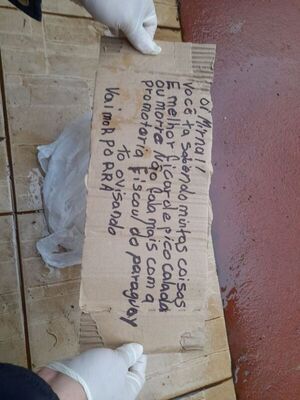 oi Mirna!!
Você ta sabendo muitas coisas
E melhor ficar de pico calada
ou morre Não fala mais com a
promotoria fiscou/do paraguay
to ovisando
Vai moR PO ARA